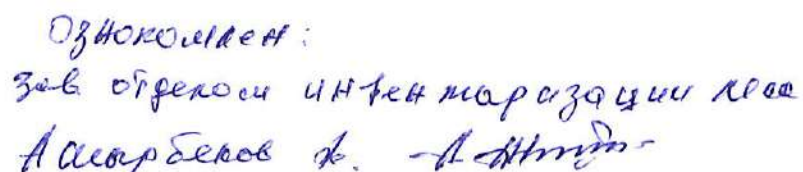 Ознокомлен:
Зав отделом инвентаризации леса
Асырбеков Ж.